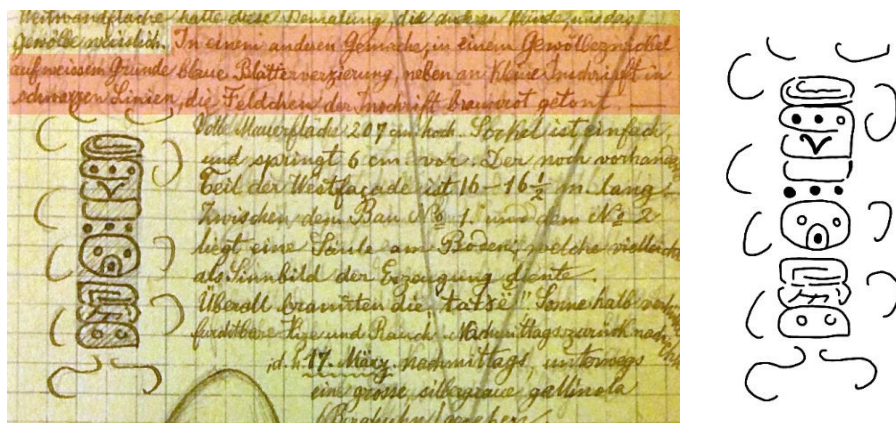 Westwandfläche hatte diese Bemalung, die anderen Wände und das
Gewölbe weisslich. In einem anderen Gemache, in einem Gewölbezwickel
auf weissem Grunde blaue Blätterverzierung, neben an kleine Inschrift in
schwarzen Linien, die Feldchen der Inschrift braunrot getont.
Volle Mauerfläche 207 cm hoch. Sockel ist einfach
und springt 6 cm vor. Der noch vorhandene
Teil der Westfaçade ist 16–16 1/2 m lang
Zwischen dem Bau № 1. und dem № 2
liegt eine Säule am Boden, welche vielleicht
als Sinnbild der Erzeugung diente.
Überall brannten die "tatse" Sonne halb
furchtbare Hize und Rauch. Nachmittags zurück nach
id. h. 17. März. nachmittags, unterwegs
eine grosse, silbergraue gallinola
(Berghuhn) gesehen.